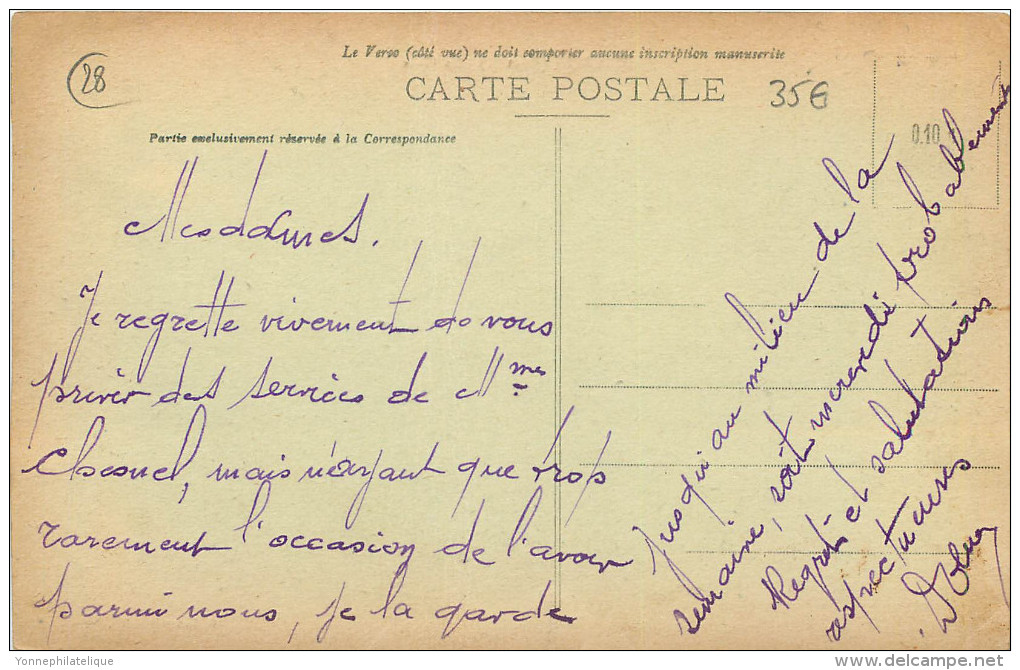 28
Le Verso (côté vue) ne doit comporter aucune inscription manuscrite
CARTE POSTALE
35€
0.10
Partie exclusivement réservée à la Correspondance
Mesdames.
Je regrette vivement de vous
priver des services de M^mes
Chesnel, mais n'ayant que trop
rarement l'occasion de l'avoir
parmi nous, je la garde
jusqu'au milieu de la
semaine, soit mercredi probablement
Regrets et salutations
respectueuses
Yonnephilatelique
www.delcampe.net